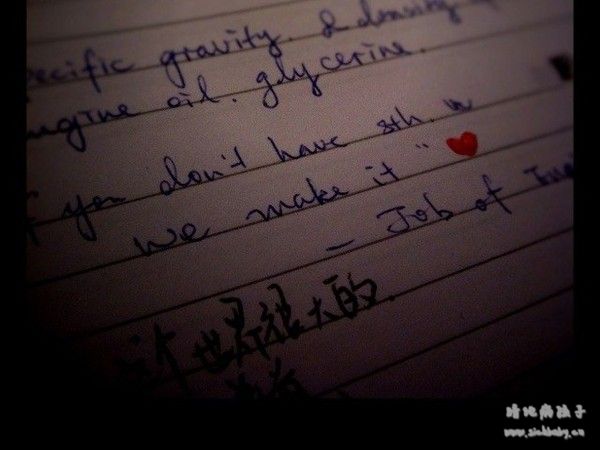 pecific gravity. & density
engine oil. glycerine.
If you don't have sth. in
we make it "
— Job of
这个世界很大的.
暗地病孩子
www.sickbaby.cn